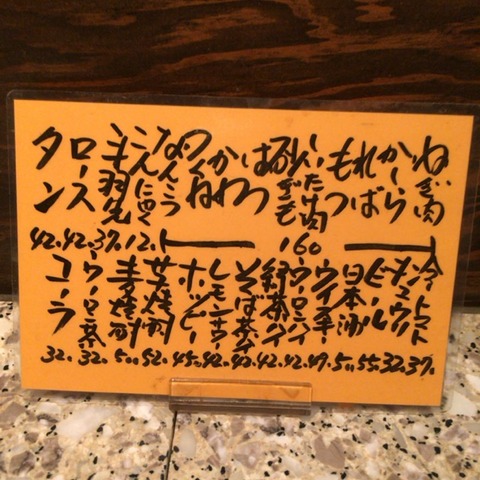 ねぎ肉
かしら
ればー
もつ
しいたけ肉
砂ぎも
はつ
かわ
つくね
なんこつ
こんにゃく
羽先
ロース
タン
160
37.
42.
42.
冷トマト
ビール
日本酒
ウイスキー
ウーロンハイ
緑茶ハイ
そば茶ハイ
レモンサワー
ホッピー
芋焼酎
麦焼酎
ウーロン茶
コーラ
37.
32.
55.
47.
42.
42.
42.
42.
45.
52.
32.
32.